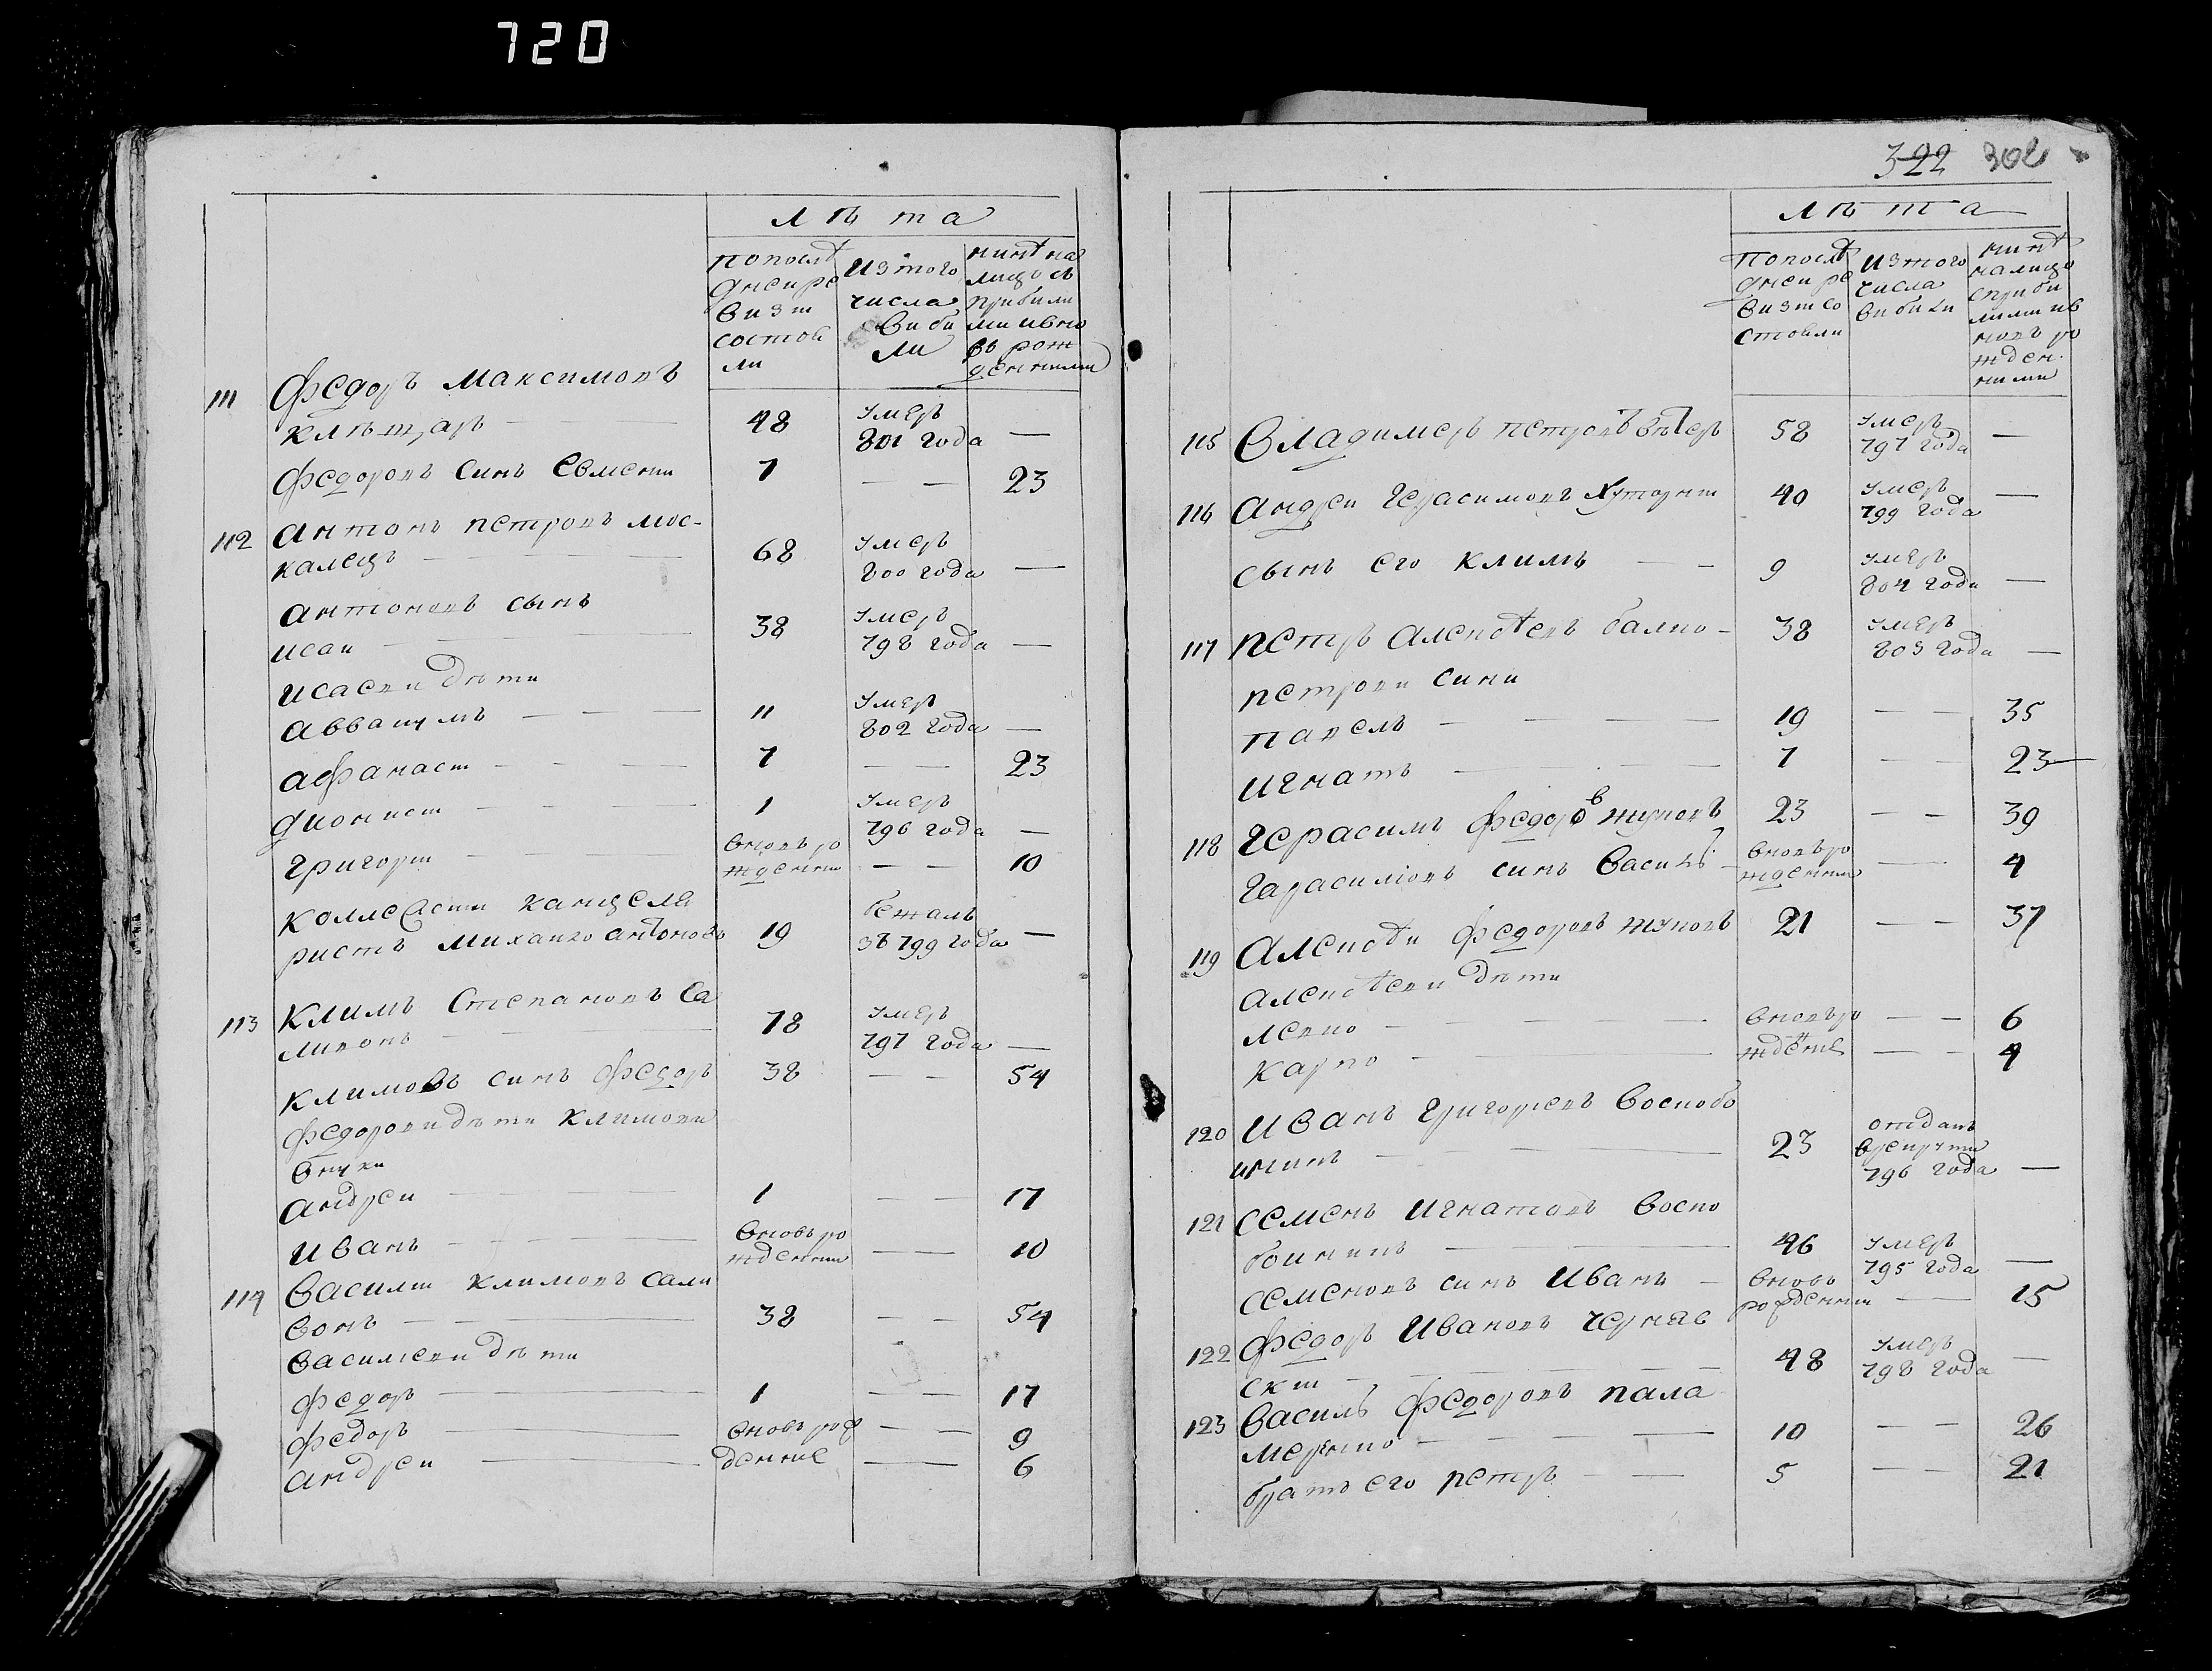 720
лѣта
попослѣ
днеи ре
визи
состоя
ли
изтого
числа
виби
ли
нинѣ на
лицо съ
прибили
ми ивно
въ рож
денними
111 Федоръ Максимовъ
клѣщаръ — 48 умеръ 801 года —
Федоровъ синъ Евмении 7 — — 23
112 Антонъ Петровъ Мос-
калецъ — 68 умеръ 800 года —
Антоновъ сынъ
Исаи — 38 умеръ 798 года —
Исаеви дѣти
Аввакумъ — 11 умеръ 802 года —
Афанаси — 7 — — 23
Диониси — 1 умеръ 796 года —
Григори — вновъ рожденни — — 10
Коллежски канцеля
ристъ Михаило Антоновъ 19 бежалъ 799 года —
113 Климъ Степановъ Са
ливонъ — 78 умеръ 797 года —
Климовъ синъ Федоръ 38 — — 54
Федорови дѣти Климови
внуки
Андреи — 1 — — 17
Иванъ — вновъ рожденни — — 10
114 Василии Климовъ Сали
вонъ — 38 — — 54
Василиеви дѣти
Федоръ — 1 — — 17
Федоръ — вновъ рож — — 9
Андреи — денние — — 6
322 302
лѣта
попослѣ
днеи ре
визи со
стояли
изтого
числа
вибили
нинѣ
налицо
сприби
лими ив
новъ ро
жден
ними
115 Владимеръ Петровъ 58 умеръ 797 года —
116 Андреи Герасимовъ Хуторни 40 умеръ 799 года —
сынъ его Климъ — — 9 умеръ 804 года —
117 Петръ Алексѣевъ - 38 умеръ 803 года —
Петрови сини
Павелъ — 19 — — 35
Игнатъ — 7 — — 23
118 Герасимъ Федоров Жуковъ 23 — — 39
Гарасимовъ синъ Василь вновъ рожденни — 4
119 Алексѣи Федоровъ Жуковъ 21 — — 37
Алексѣеви дѣти
Левко — вновъ ро — — 6
Карпо — ждение — — 4
120 Иванъ Григориевъ Воскобо
иникъ — 23 отданъ врекрути 796 года —
121 Семенъ Игнатовъ Воско
боиникъ — 46 умеръ 795 года —
Семеновъ синъ Иванъ — вновь рожденни — 15
122 Федоръ Ивановъ Черняв
ски — 48 умеръ 798 года —
123 Василь Федоровъ Пала
мерчко — 10 — — 26
братъ его Петръ — 5 — — 21